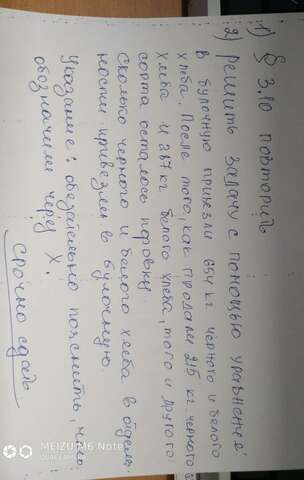 1) § 3.10 повторить
2) Решить задачу с помощью уравнения:
В булочную привезли 654 кг чёрного и белого
хлеба. После того, как продали 215 кг черного
хлеба и 287 кг белого хлеба, того и другого
сорта осталось поровну.
Сколько черного и белого хлеба в отдель-
ности привезли в булочную.
Указание: обязательно пояснить, что
обозначили через X.
срочно сдать
MEIZU M6 Note
DUAL CAMERA